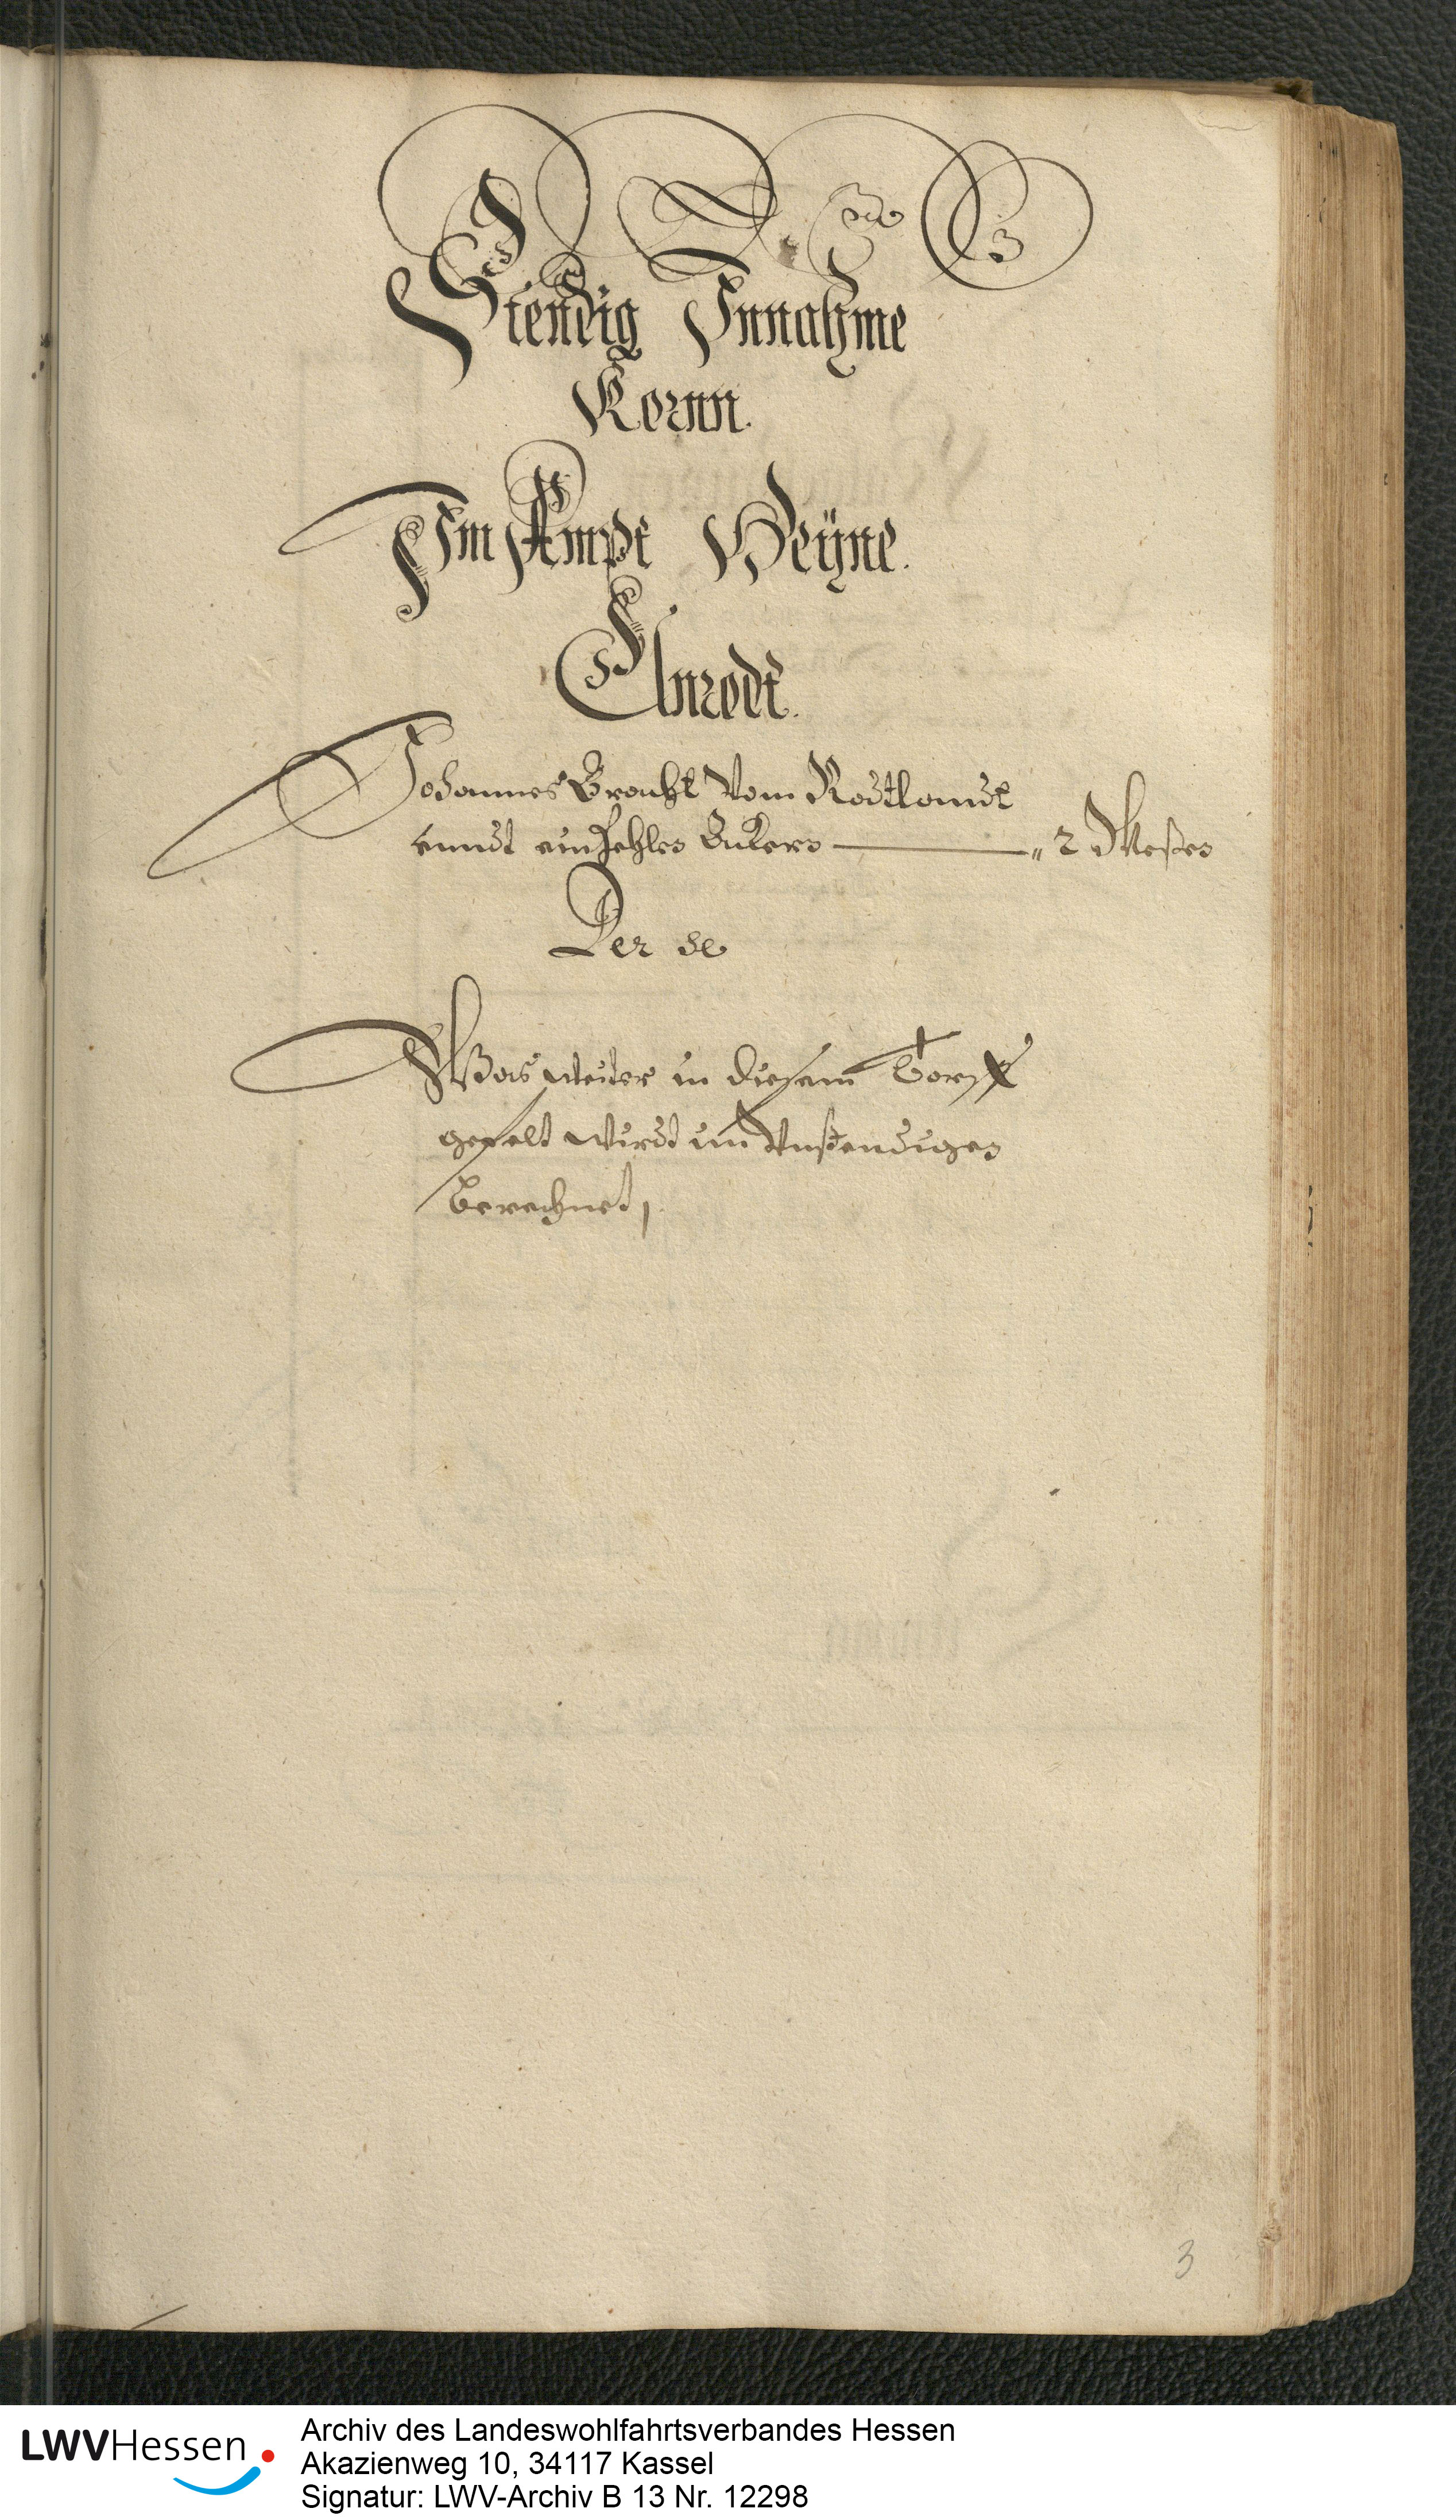 Stendig Innahme
Kornn.
Im Ampt Weÿne.
Elnrodt.
Johannes Bracht vom Rodtlandt
unndt Ackers „ 2 Metzen
Per se
Was weiter in diesem Dorff
gefelt wirdt im Unstendigen
berechnet,
3
LWVHessen
Archiv des Landeswohlfahrtsverbandes Hessen
Akazienweg 10, 34117 Kassel
Signatur: LWV-Archiv B 13 Nr. 12298